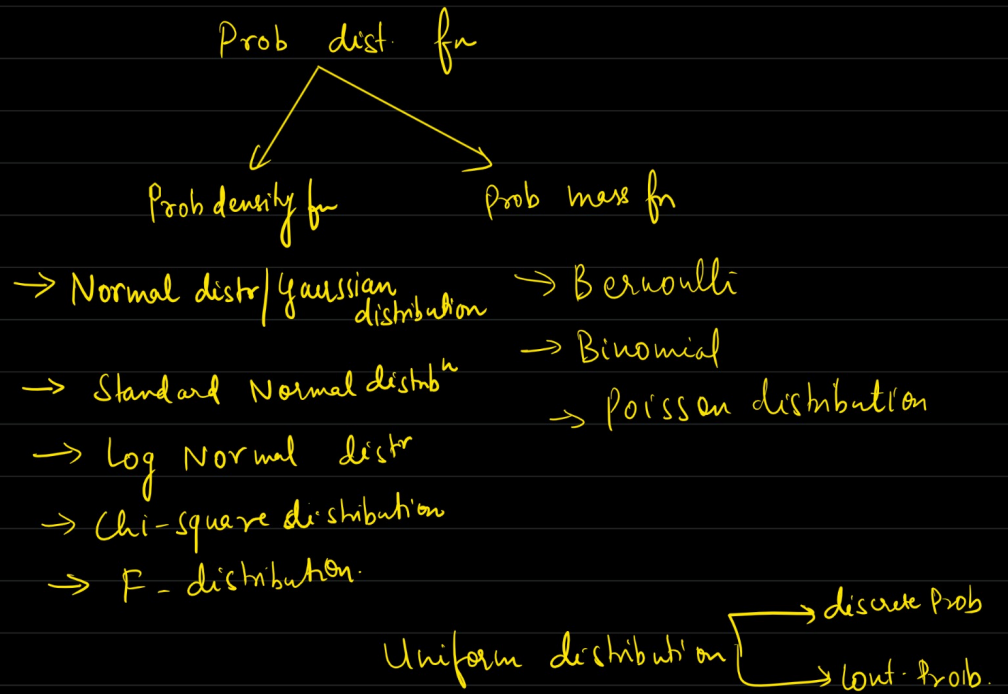 Prob dist. fn
Prob density fn
Prob mass fn
→ Normal distr/Gaussian
distribution
→ Standard Normal distribⁿ
→ Log Normal distr
→ Chi-square distribution
→ F - distribution.
→ Bernoulli
→ Binomial
→ Poisson distribution
Uniform distribution
discrete Prob
Cont. Prob.